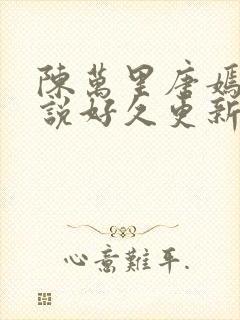 陳萬里唐嫣
說好久更新
心意難平.